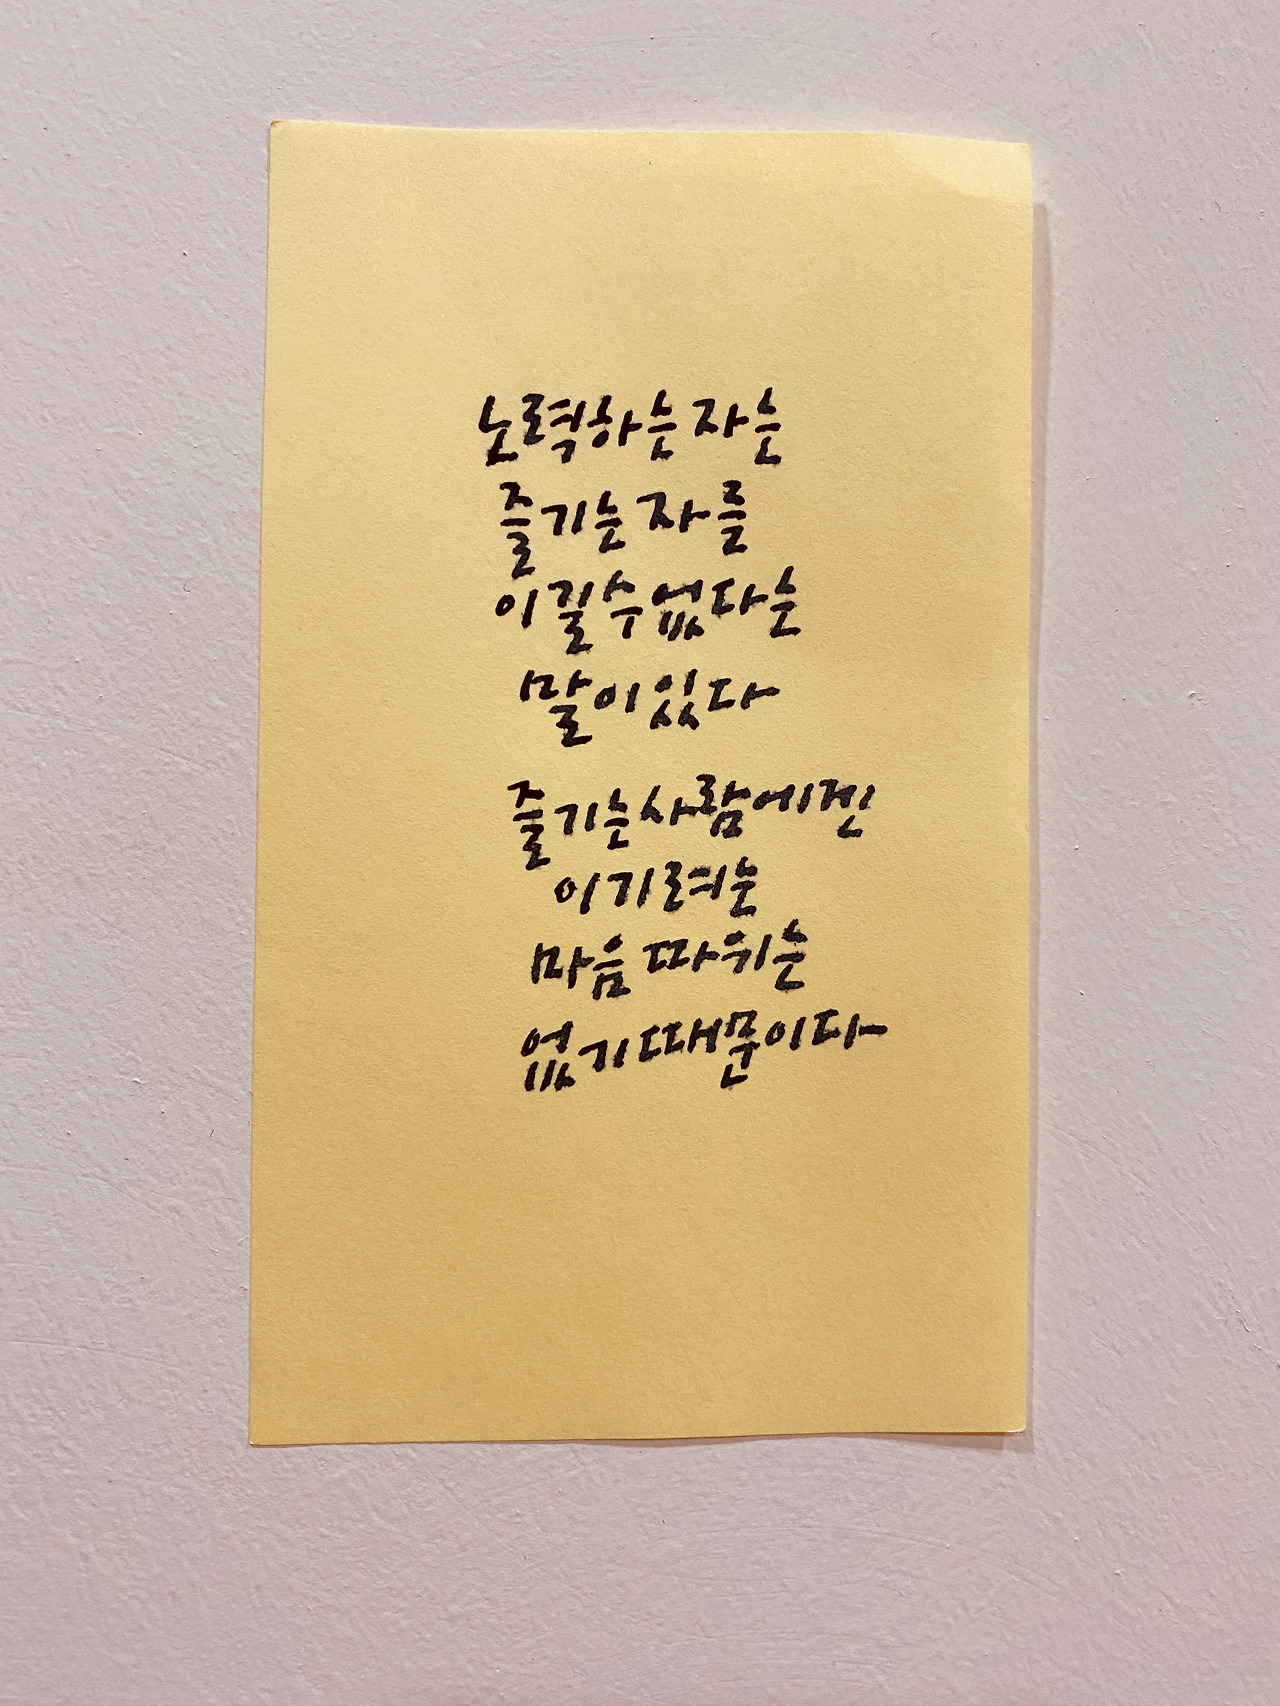 노력하는 자는
즐기는 자를
이길 수 없다는
말이 있다
즐기는 사람에겐
이기려는
마음 따위는
없기 때문이다